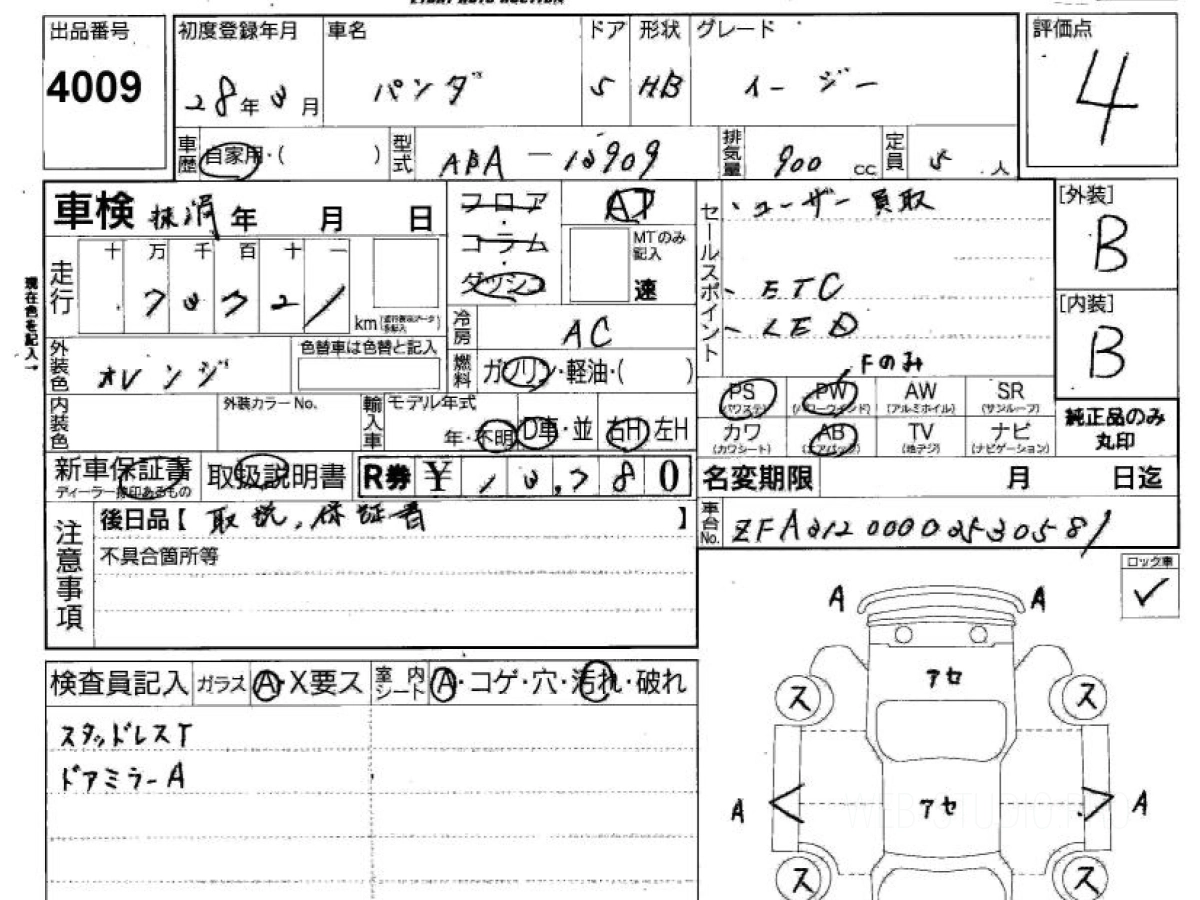 出品番号 初度登録年月 車名 ドア 形状 グレード 評価点
4009 28年3月 パンダ 5 HB イージー 4
車歴 自家用・( ) 型式 ABA-13909 排気量 900 cc 定員 5 人
車検 抹消 年 月 日 フロア・コラム・ダッシュ AT セールスポイント ・ユーザー買取 [外装] B
MTのみ記入 速
走行 十 万 千 百 十 一
73721 km
・ETC
・LED
[内装] B
現在色を記入→
冷房 AC
外装色 オレンジ 色替車は色替と記入
燃料 ガソリン・軽油・( )
Fのみ
PS (パワステ) PW (パワーウインド) AW (アルミホイル) SR (サンルーフ)
カワ (カワシート) AB (エアバッグ) TV (地デジ) ナビ (ナビゲーション)
純正品のみ丸印
内装色 外装カラーNo. 輸入車 モデル年式 年・不明 D車・並 右H 左H
新車保証書 ディーラー捺印あるもの 取扱説明書 R券 ¥ 13,780 名変期限 月 日迄
注意事項 後日品【 取説、保証書 】 車台No. ZFA3120000353058/
不具合箇所等
ロック車 ✓
A A
検査員記入 ガラス A・X要ス 室内シート A・コゲ・穴・汚れ・破れ
アセ
ス ス
スタッドレスT
ドアミラーA
A アセ A
ス ス